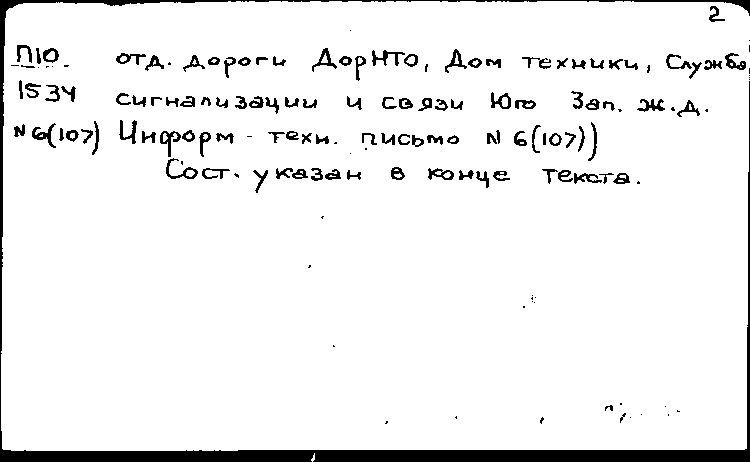 2
П10. отд. дороги ДорНТО, Дом техники, Служба
1534 сигнализации и связи Юго Зап. ж.д.
N6(107) Информ - техн. письмо N 6(107))
Сост. указан в конце текста.